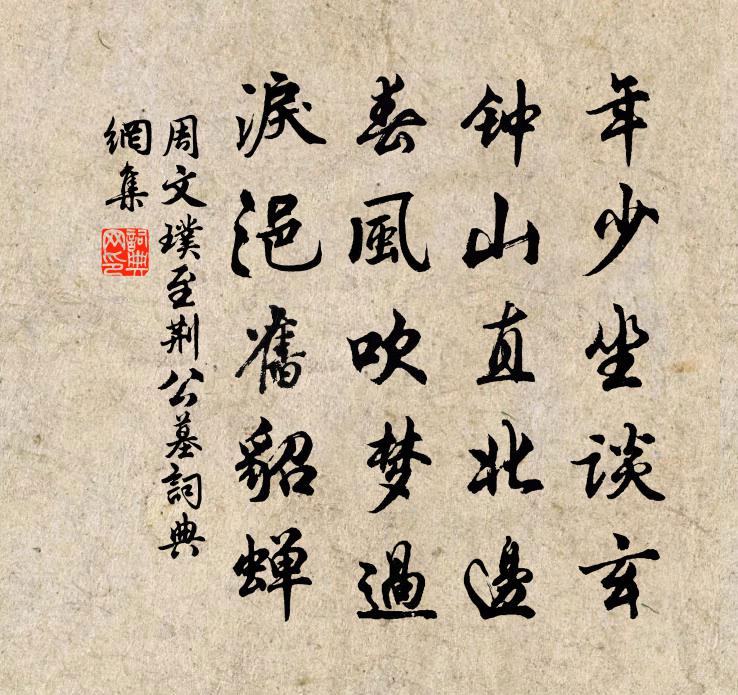 年少坐谈玄
钟山直北邊
春風吹梦過
淚浥舊貂蝉
周文璞至荆公墓詞典
網集
詞典
网印